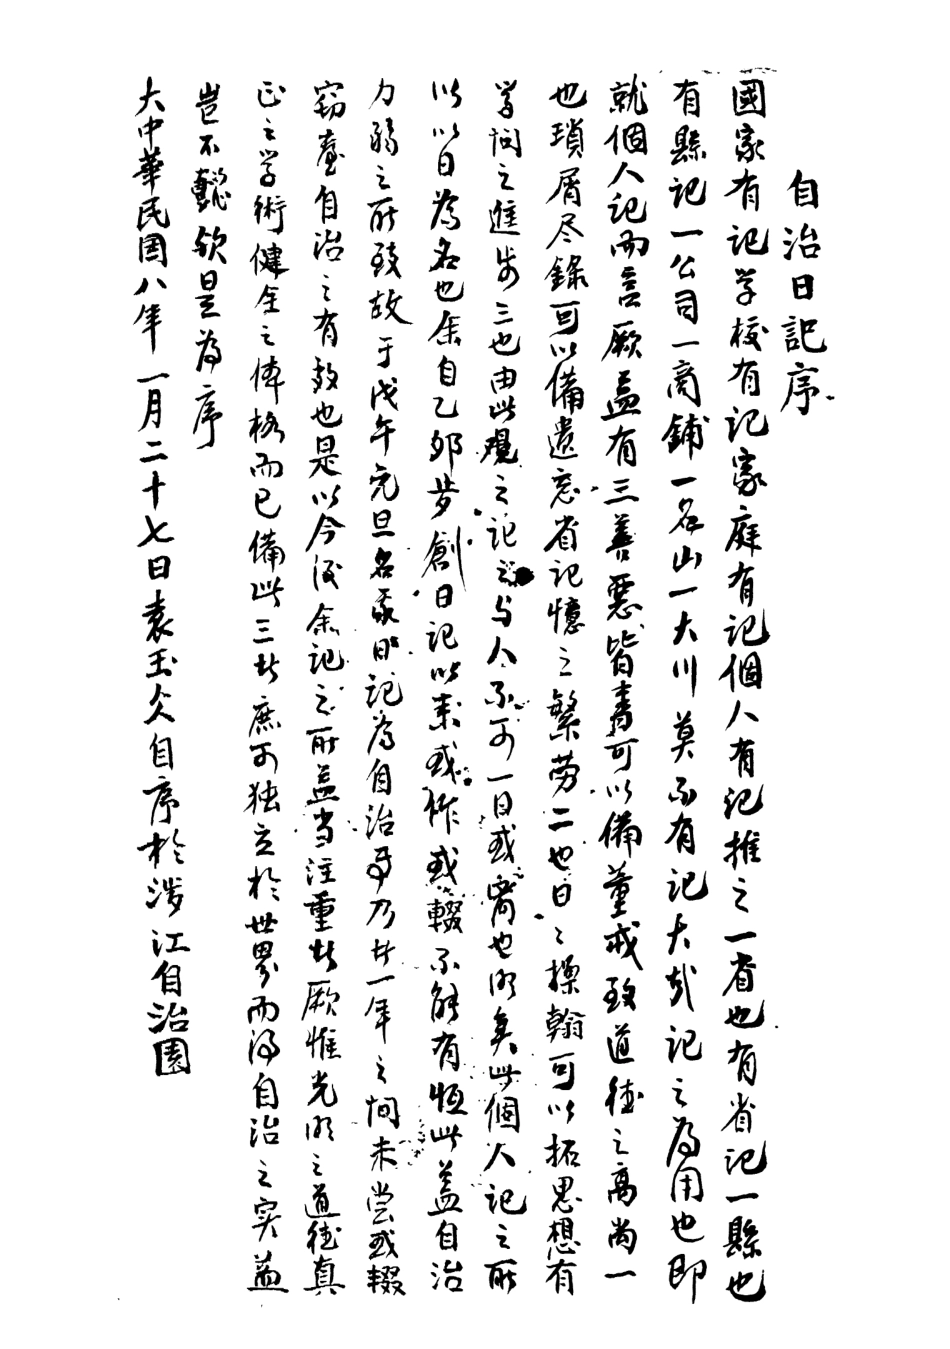 自治日記序
國家有記学校有記家庭有記個人有記推之一省也有省記一縣也
有縣記一公司一商鋪一名山一大川莫不有記大哉記之為用也即
就個人記而言厥益有三善惡皆書可以備董戒致道德之高尚一
也瑣屑尽錄可以備遺忘省記憶之繁勞二也日々操翰可以拓思想有
学問之進步三也由此观之记之与人不可一日或离也明矣此個人記之所
以以日為名也余自乙卯步創日記以来或作或輟不能有恒此盖自治
力弱之所致故于戊午元旦名我日記為自治乃廿一年之间未尝或輟
窃喜自治之有效也是以今後余記之所益当注重者厥惟光明之道德真
正之学術健全之体格而已備此三者庶可独立於世界而得自治之实益
岂不懿欤是為序
大中華民国八年一月二十七日袁玉冰自序於涉江自治園